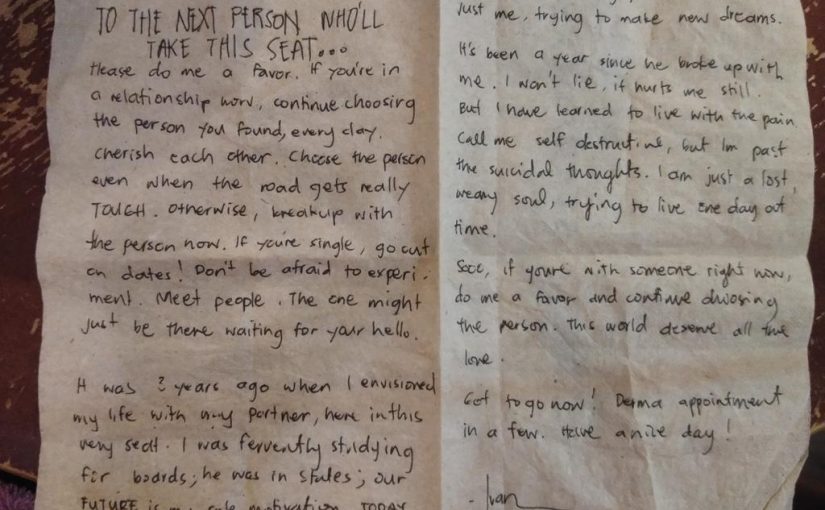 TO THE NEXT PERSON WHO'LL
TAKE THIS SEAT...
Please do me a favor. If you're in
a relationship now, continue choosing
the person you found, every day.
Cherish each other. Choose the person
even when the road gets really
TOUGH. Otherwise, breakup with
the person now. If you're single, go out
on dates! Don't be afraid to experi-
ment. Meet people. The one might
just be there waiting for your hello.
It was 2 years ago when I envisioned
my life with my partner, here in this
very seat. I was fervently studying
for boards; he was in states; our
FUTURE is my sole motivation. TODAY
just me, trying to make new dreams.
It's been a year since he broke up with
me. I won't lie, it hurts me still.
But I have learned to live with the pain
Call me self destructive, but Im past
the suicidal thoughts. I am just a lost,
weary soul, trying to live one day at
time.
Sooo, if youre with someone right now,
do me a favor and continue choosing
the person. This world deserve all the
love.
Got to go now! Derma appointment
in a few. Have a nice day!
- Ivan